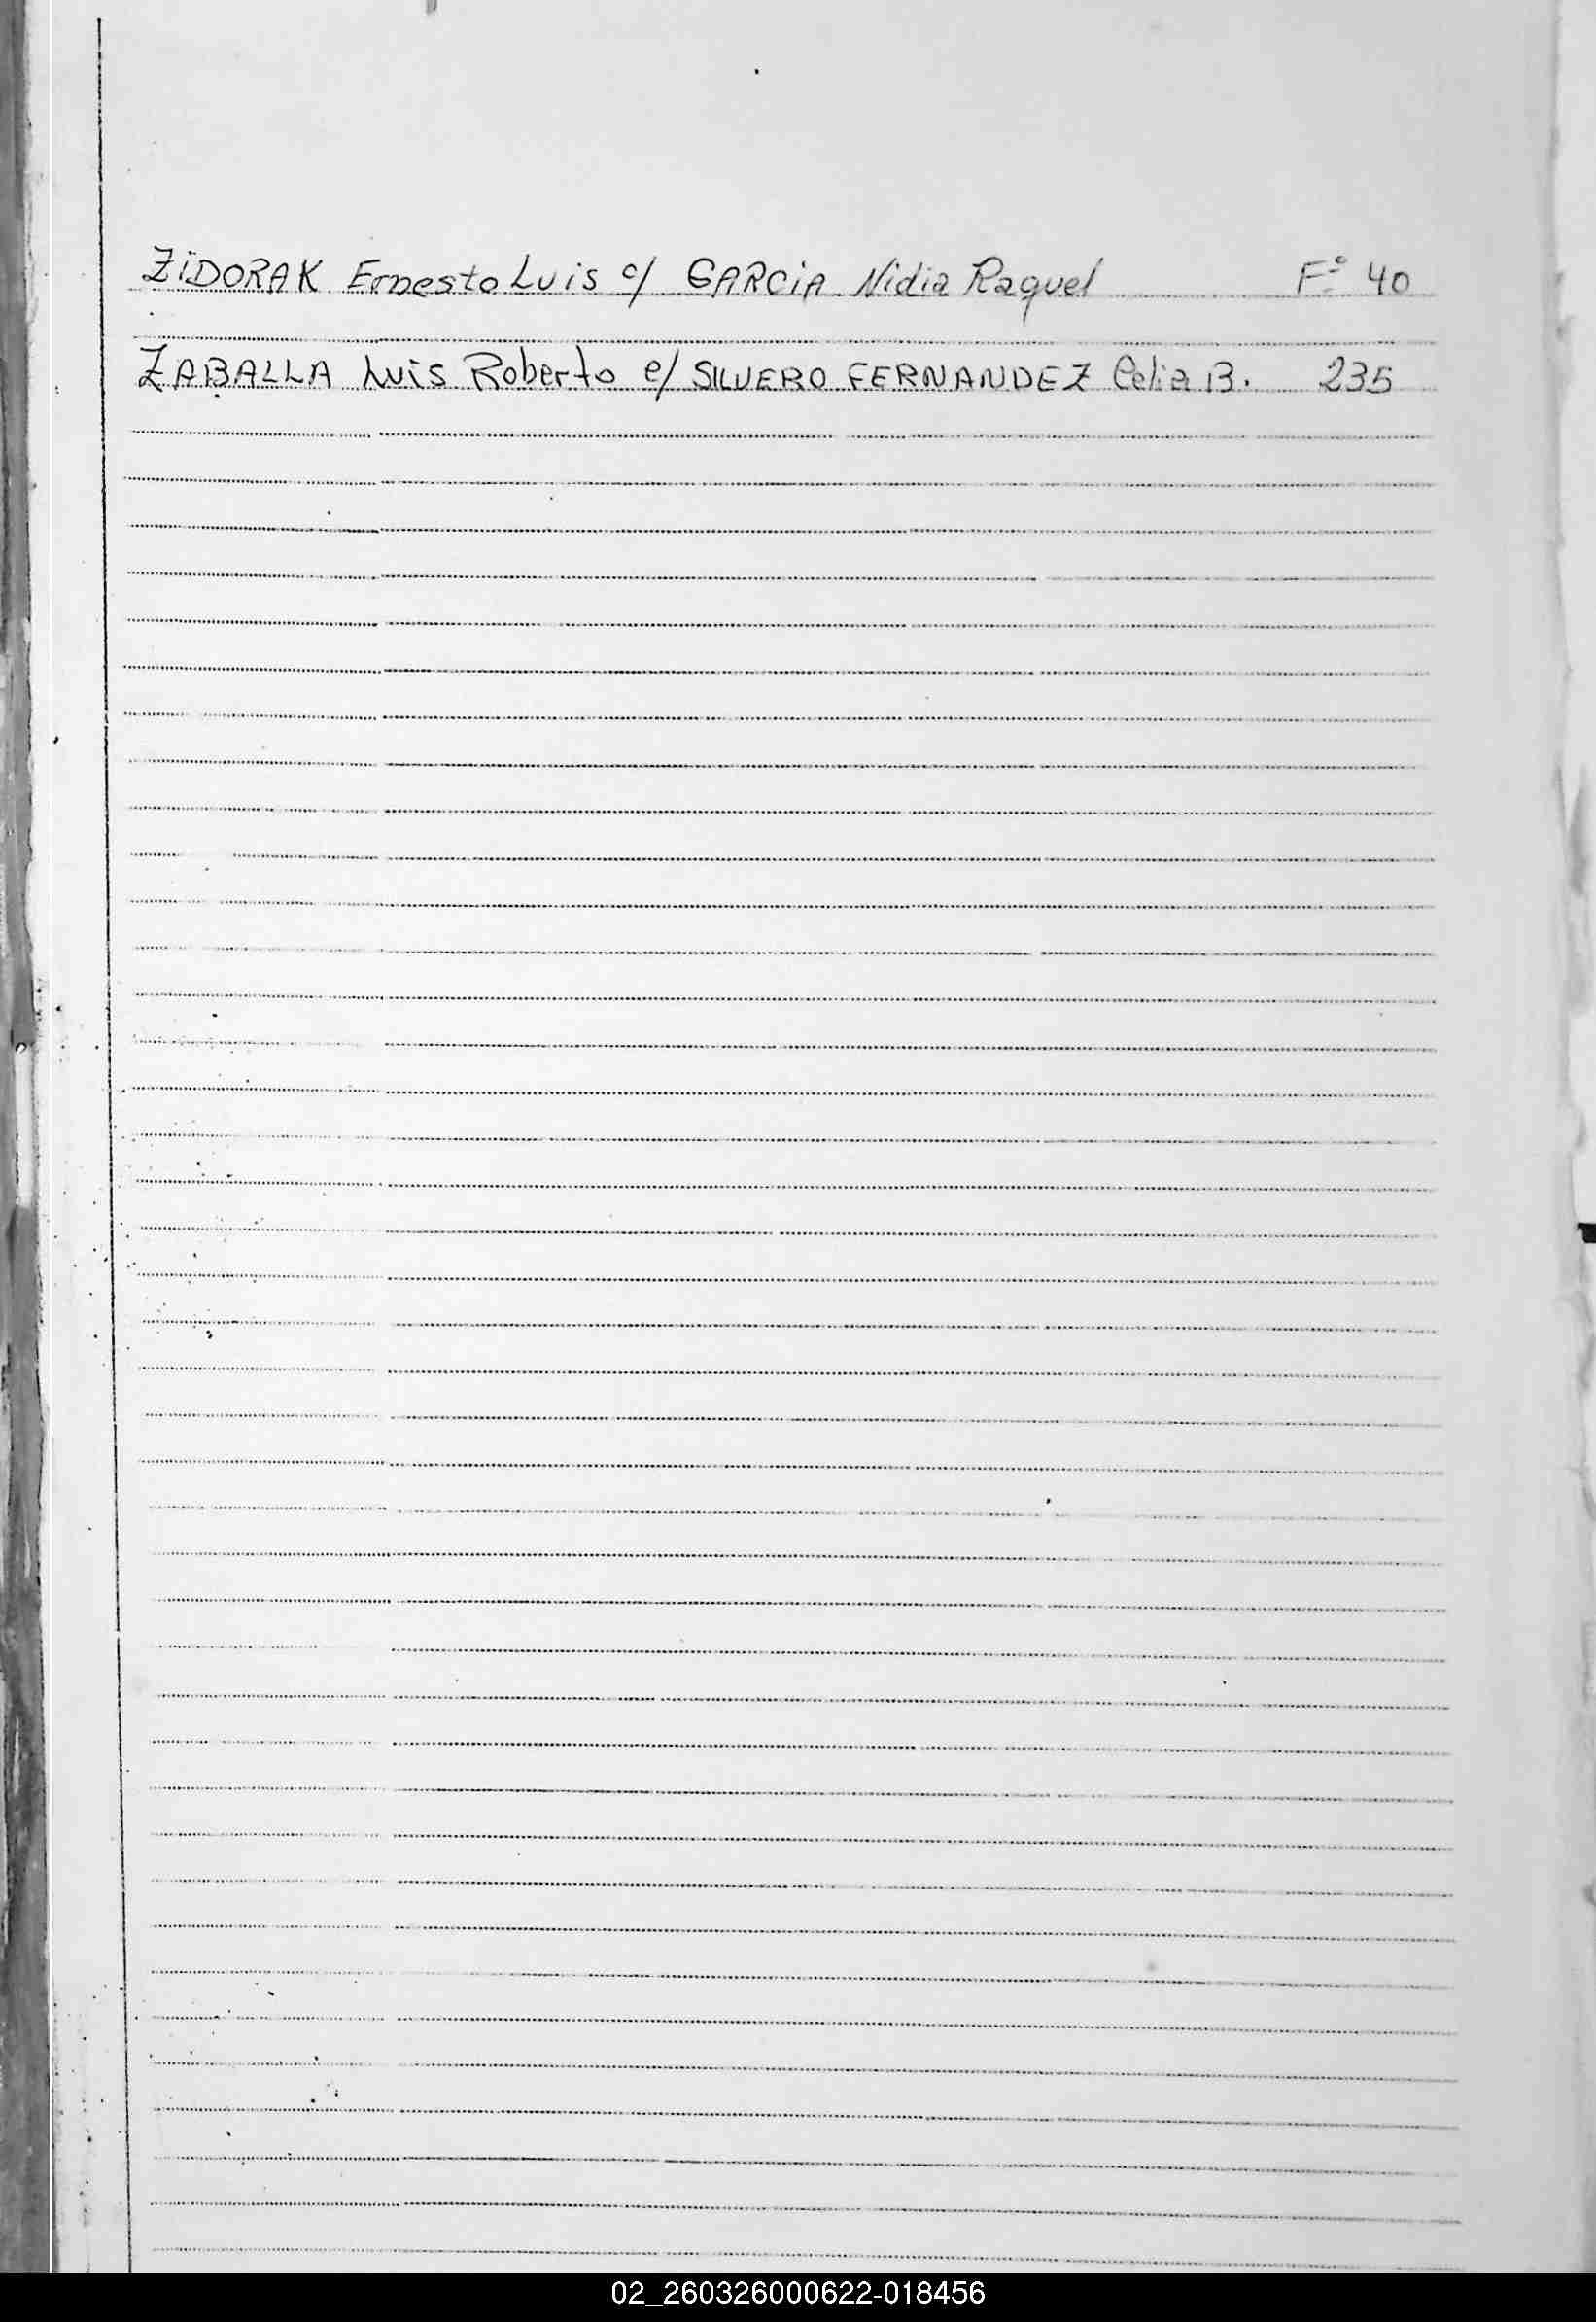 ZIDORAK Ernesto Luis c/ GARCIA Nidia Raquel Fº 40
ZABALLA Luis Roberto c/ SILVERO FERNANDEZ Celia B. 235
02_260326000622-018456